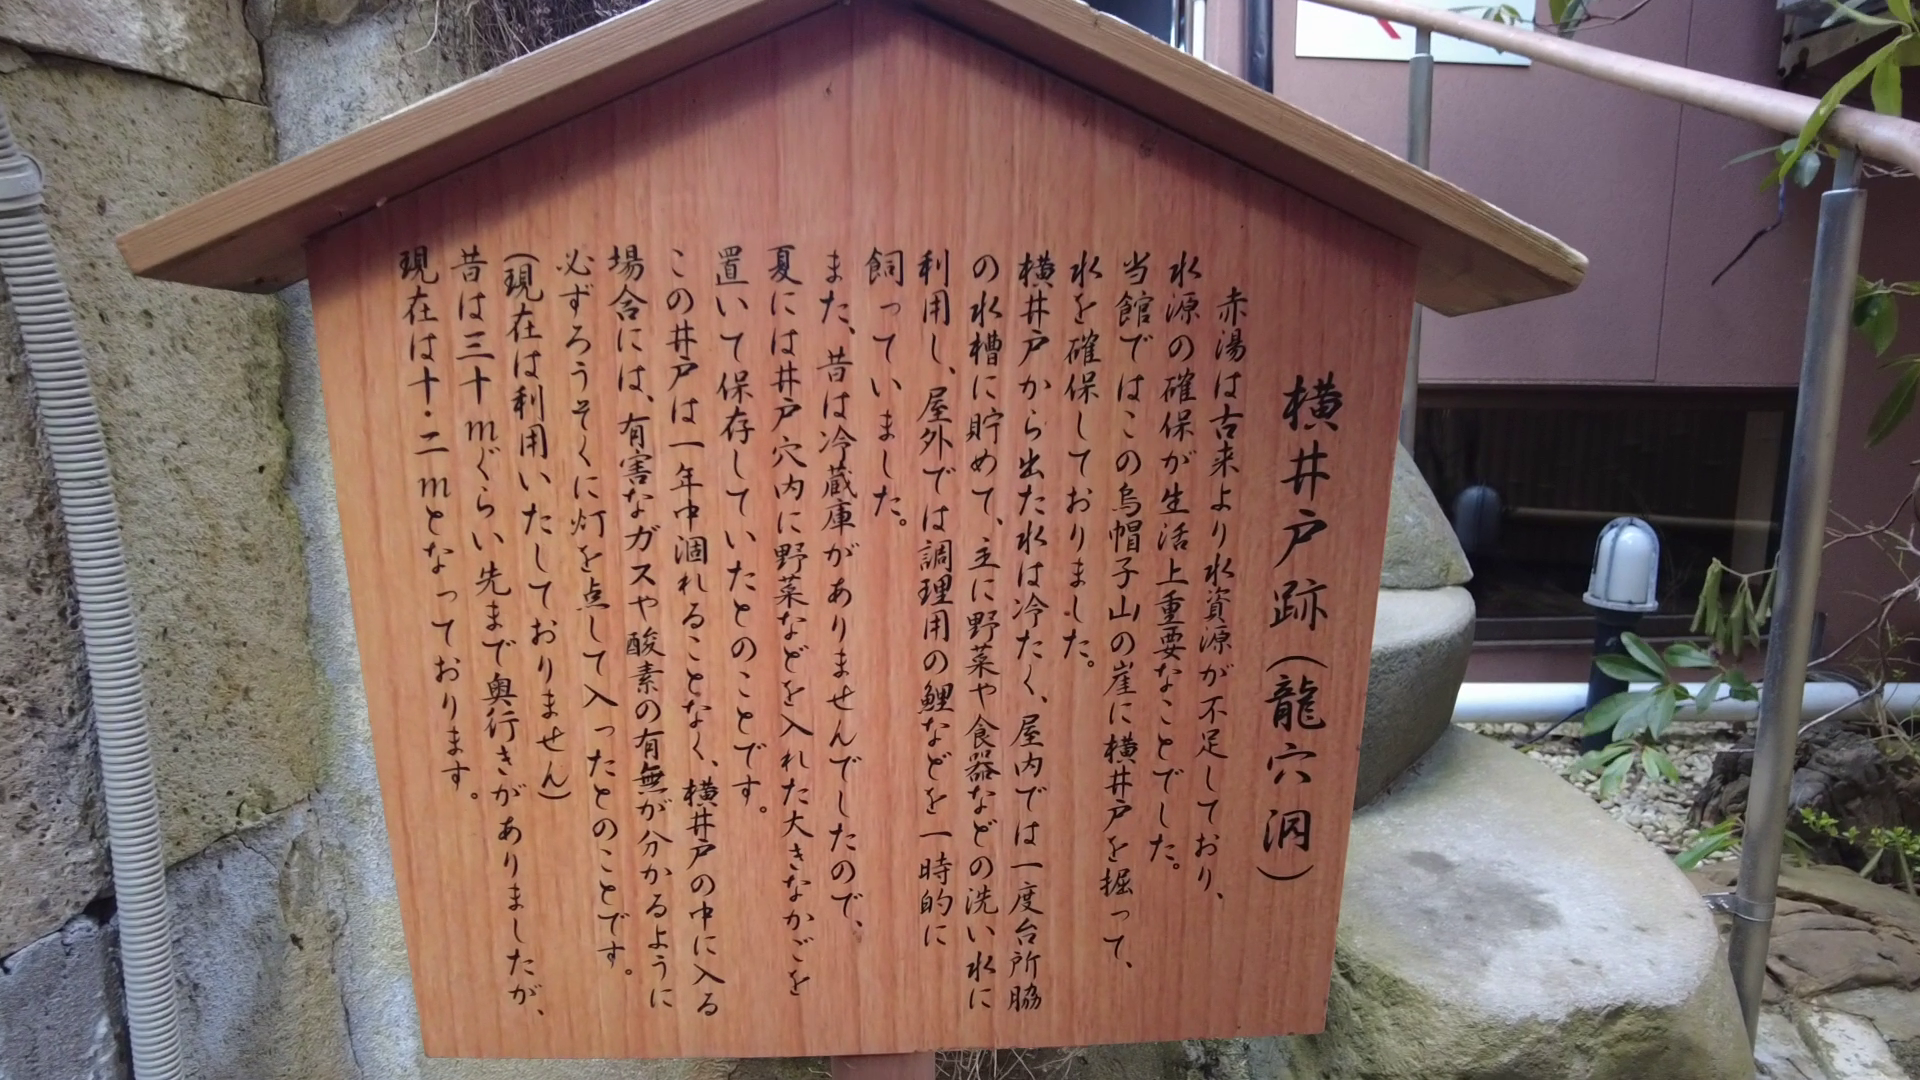 横井戸跡（龍穴洞）
赤湯は古来より水資源が不足しており、
水源の確保が生活上重要なことでした。
当館ではこの烏帽子山の崖に横井戸を掘って、
水を確保しておりました。
横井戸から出た水は冷たく、屋内では一度台所脇
の水槽に貯めて、主に野菜や食器などの洗い水に
利用し、屋外では調理用の鯉などを一時的に
飼っていました。
また、昔は冷蔵庫がありませんでしたので、
夏には井戸穴内に野菜などを入れた大きなかごを
置いて保存していたとのことです。
この井戸は一年中涸れることなく、横井戸の中に入る
場合には、有害なガスや酸素の有無が分かるように
必ずろうそくに灯を点して入ったとのことです。
（現在は利用いたしておりません）
昔は三十mぐらい先まで奥行きがありましたが、
現在は十・二mとなっております。